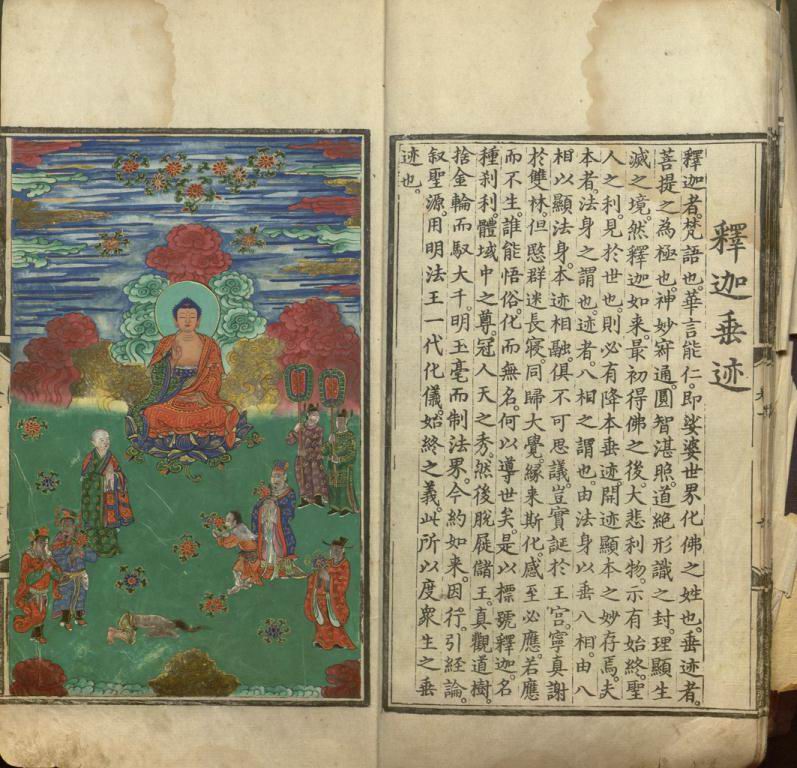 釋迦垂迹
釋迦者。梵語也。華言能仁。即娑婆世界化佛之姓也。垂迹者。
菩提之為極也。神妙寂通。圓智湛照。道絕形識之封。理顯生
滅之境。然釋迦如来。最初得佛之後。大悲利物。示有始終。聖
人之利。見於世也。則必有降本垂迹。開迹顯本之妙存焉。夫
本者。法身之謂也。迹者。八相之謂也。由法身以垂八相。由八
相以顯法身。本迹相融。俱不可思議。豈實誕於王宮。寧真謝
於雙林。但愍群迷長寢。同歸大覺。緣来斯化。感至必應。若應
而不生。誰能悟俗。化而無名。何以導世矣。是以標號釋迦。名
種刹利。體域中之尊。冠人天之秀。然後脫屣儲王。真觀道樹。
捨金輪而馭大千。明玉毫而制法界。今約如来。因行。引經論。
叙聖源。用明法王一代化儀。始終之義。此所以度衆生之垂
迹也。